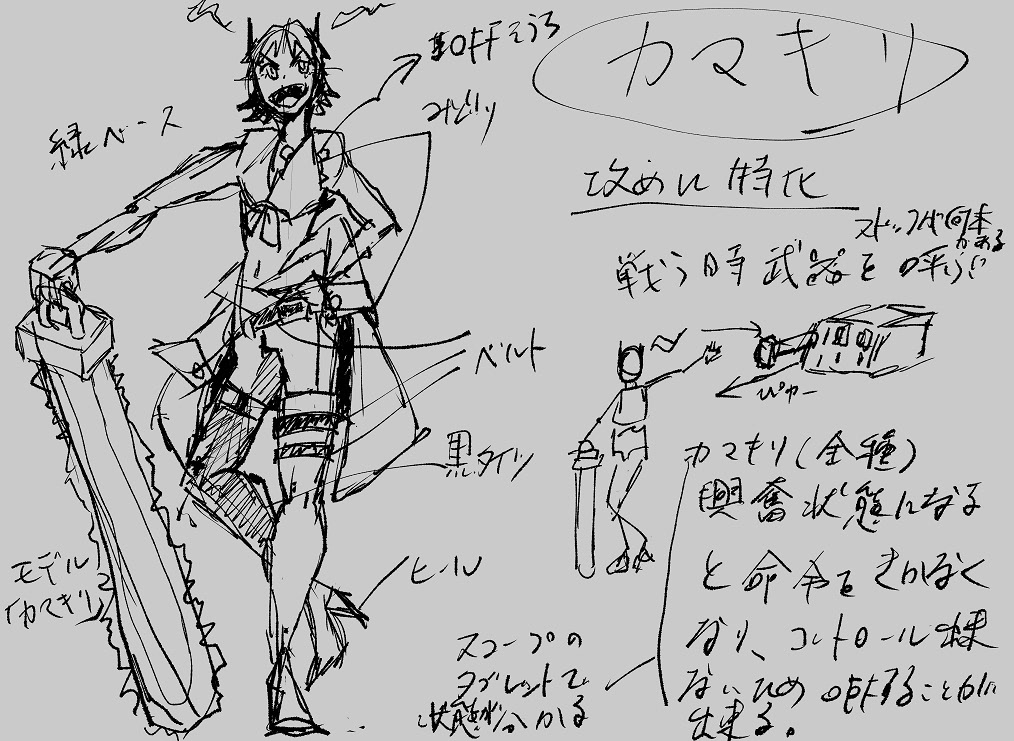 カマキリ
緑ベース
みどり
攻めに特化
戦う時武器を呼ぶ
ストック何本
がある
ベルト
ぴゅー
黒タイツ
ヒール
モデル
「カマキリ」
カマキリ(全種)
興奮状態になる
と命令をきかなく
なり、コントロール
ないため OFFすることが
出来る。
スコープの
タブレットで
状態が分かる